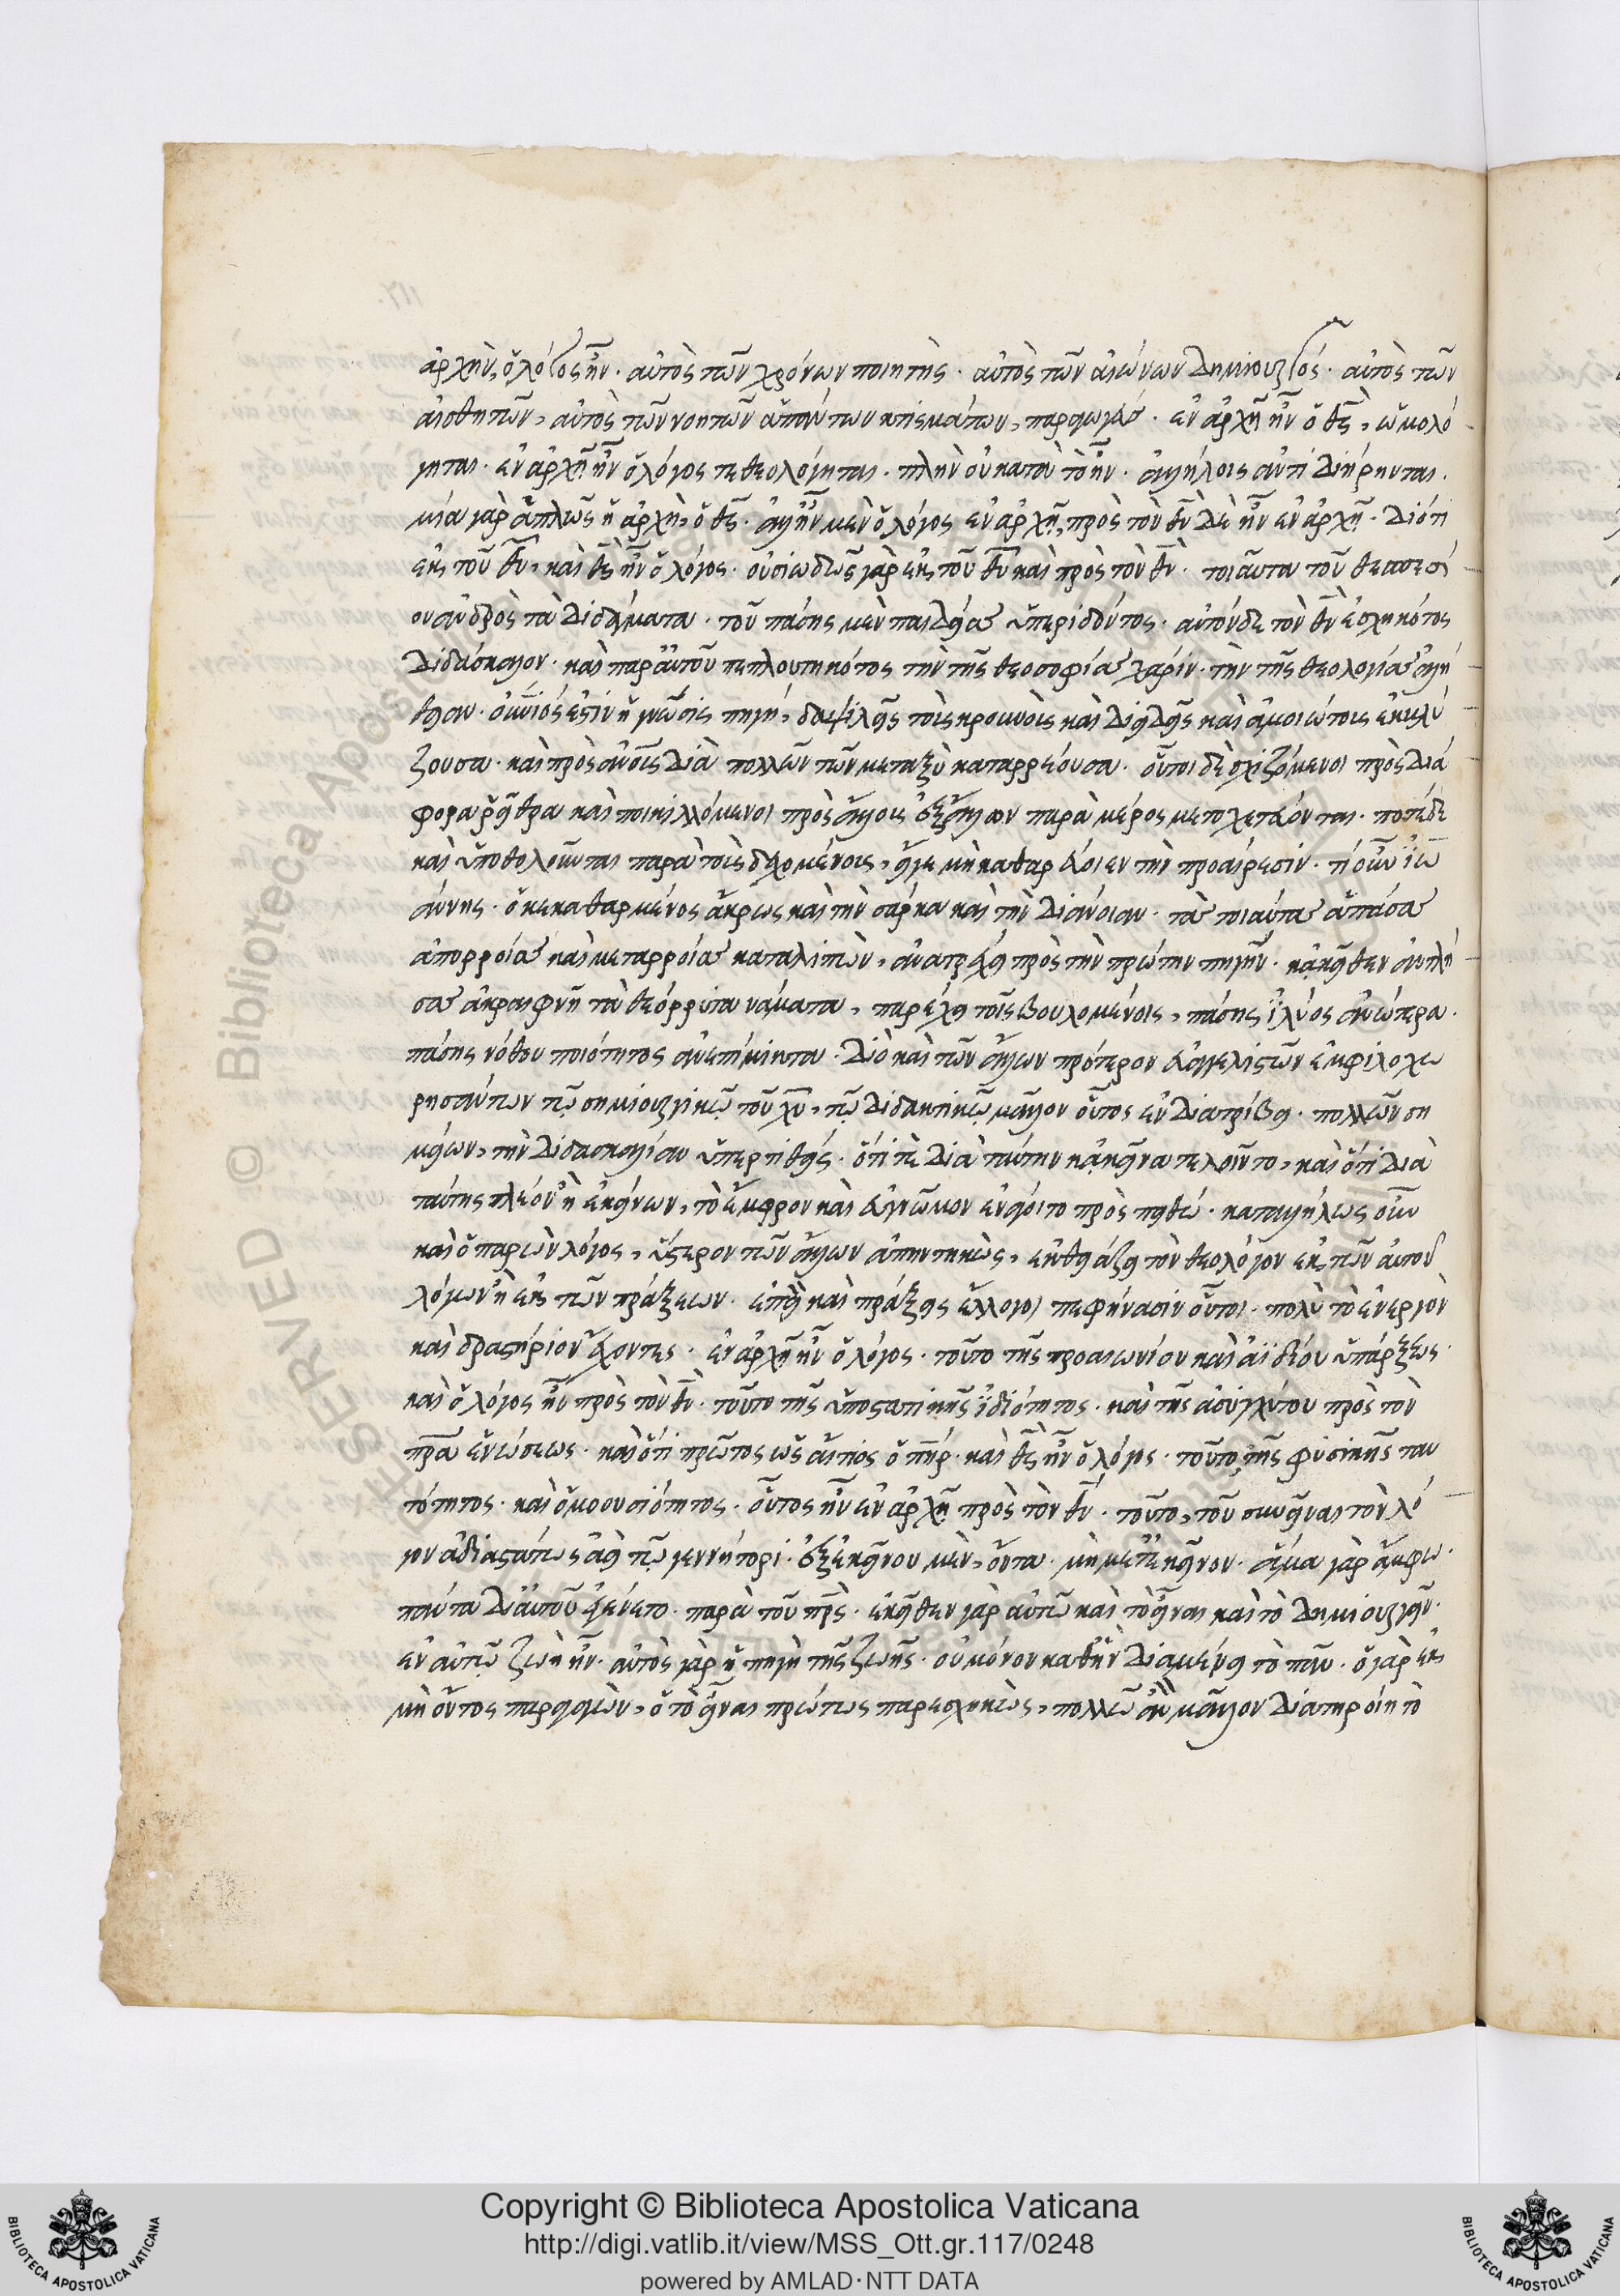 ἀρχὴν, ὁ λόγος ἦν. αὐτὸς τῶν χρόνων ποιητὴς. αὐτὸς τῶν αἰώνων δημιουργός. αὐτὸς τῶν
αἰσθητῶν, αὐτὸς τῶν νοητῶν ἁπάντων κτισμάτων, παραγωγεύς. ἐν ἀρχῆ ἦν ὁ θς, ὡμολό
γηται. ἐν ἀρχῆ ἦν ὁ λόγος τεθεολόγηται. πλὴν οὐ κατὰ τὸ ἦν. ἀλλήλοις ἀντιδιήρηνται.
μία γὰρ ἁπλῶς ἡ ἀρχὴ, ὁ θς. ἀλλ ἦν μὲν ὁ λόγος ἐν ἀρχῆ, πρὸς τὸν θν δὲ ἦν ἐν ἀρχῆ. διότι
ἐκ τοῦ θυ, καὶ θς ἦν ὁ λόγος. οὐσιωδῶς γὰρ ἐκ τοῦ θυ καὶ πρὸς τὸν θν. τοιαῦτα τοῦ θεσπεσί
ου ἀνδρὸς τὰ διδάγματα. τοῦ πάσης μὲν παιδείας ὑπεριδόντος. αὐτὸν δὲ τὸν θν ἐσχηκότος
διδάσκαλον. καὶ παρ αὐτοῦ πεπλουτηκότος τὴν τῆς θεοσοφίας χάριν. τὴν τῆς θεολογίας ἀλή
θειαν. οἱονεί τίς ἐστιν ἡ γνῶσις πηγή, δαψιλῶς τοῖς κρουνοῖς καὶ διειδῶς καὶ ἀμοιώτοις ἐκκλύ
ζουσα. καὶ πρὸς αὐτοῖς διὰ πολλῶν τῶν μεταξὺ καταρρέουσα. οὗτοι δὲ σχιζόμενοι πρὸς διά
φορα ῥεῖθρα καὶ ποικιλλόμενοι πρὸς ἄλλοις ἐξ ἄλλων παρὰ μέρος μετοχετεύονται. ποτὲ δὲ
καὶ ὑποθολοῦνται παρὰ τοῖς δεχομένοις, εἴγε μὴ καθαρεύοιεν τὴν προαίρεσιν. τί οὖν ἰω
άννης. ὁ κεκαθαρμένος ἄκρως καὶ τὴν σάρκα καὶ τὴν διάνοιαν. τὰς τοιαύτας ἁπάσας
ἀπορροίας καὶ μεταρροίας καταλιπὼν, ἀνατρέχει πρὸς τὴν πρώτην πηγὴν. κἀκεῖθεν ἀντλή
σας ἀκραιφνῆ τὰ θεόρρυτα νάματα, παρέχει τοῖς βουλομένοις, πάσης ἰλύος ἀνώτερα.
πάσης νόθου ποιότητος ἀνεπίμικτα. διὸ καὶ τῶν ἄλλων πρότερον εὐαγγελιστῶν ἐμφιλοχω
ρησάντων τῷ σημιουργικῷ τοῦ χυ, τῷ διδακτικῷ μᾶλλον οὗτος ἐνδιατρίβει. πολλῶν ση
μείων, τὴν διδασκαλίαν ὑπερτιθείς. ὅτι τὲ διὰ ταύτην κἀκεῖνα τελοῖντο, καὶ ὅτι διὰ
ταύτης πλέον ἢ ἐκείνων, τὸ ἔμφρον καὶ εὔγνωμον ἐνάγοιτο πρὸς πειθώ. καταλλήλως οὖν
καὶ ὁ παρὼν λόγος, ὕστερον τῶν ἄλλων ἀπηντηκὼς, ἐκθειάζει τὸν θεολόγον ἐκ τῶν αὐτοῦ
λόγων ἢ ἐκ τῶν πράξεων. ἐπεὶ καὶ πράξεις ἔλλογοι πεφήνασιν οὗτοι. πολὺ τὸ ἐνεργὸν
καὶ δραστήριον ἔχοντες. ἐν ἀρχῆ ἦν ὁ λόγος. τοῦτο τῆς προαιωνίου καὶ ἀϊδίου ὑπάρξεως.
καὶ ὁ λόγος ἦν πρὸς τὸν θν. τοῦτο τῆς ὑποστατικῆς ἰδιότητος. καὶ τῆς ἀσυγχύτου πρὸς τὸν
πρα ἑνώσεως. καὶ ὅτι πρῶτος ὡς αἴτιος ὁ πηρ. καὶ θς ἦν ὁ λόγος. τοῦτο, τῆς φυσικῆς ταυ
τότητος. καὶ ὁμοουσιότητος. οὗτος ἦν ἐν ἀρχῆ πρὸς τὸν θν. τοῦτο, τοῦ συνεῖναι τὸν λό
γον ἀδιαστάτως ἀεὶ τῷ γεννήτορι. ἐξ ἐκείνου μὲν, ὄντα. μὴ μετ ἐκεῖνον. ἅμα γὰρ ἄμφω.
πάντα δι αὐτοῦ ἐγένετο. παρὰ τοῦ πρς. ἐκεῖθεν γὰρ αὐτῶ καὶ τὸ εἶναι καὶ τὸ δημιουργεῖν.
ἐν αὐτῷ ζωὴ ἦν. αὐτὸς γὰρ ἡ πηγὴ τῆς ζωῆς. οὐ μόνον καθ ἣν διαμένει τὸ πᾶν. ὁ γὰρ ἐκ
μὴ ὄντος παραγαγὼν, ὁ τὸ εἶναι πρώτως παρεσχηκὼς, πολλῷ ἂν μᾶλλον διατηροίη τὸ